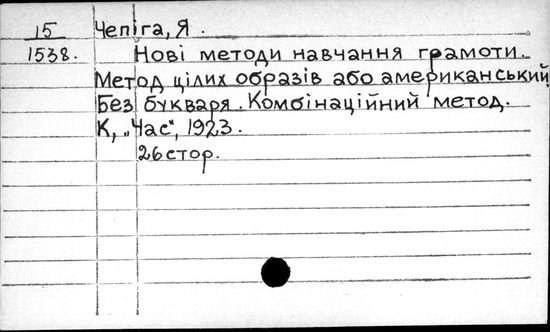 15 Чепіга, Я.
1538. Нові методи навчання грамоти.
Метод цілих образів або американський
Без букваря. Комбінаційний метод.
К, „Час“, 1923.
26 стор.